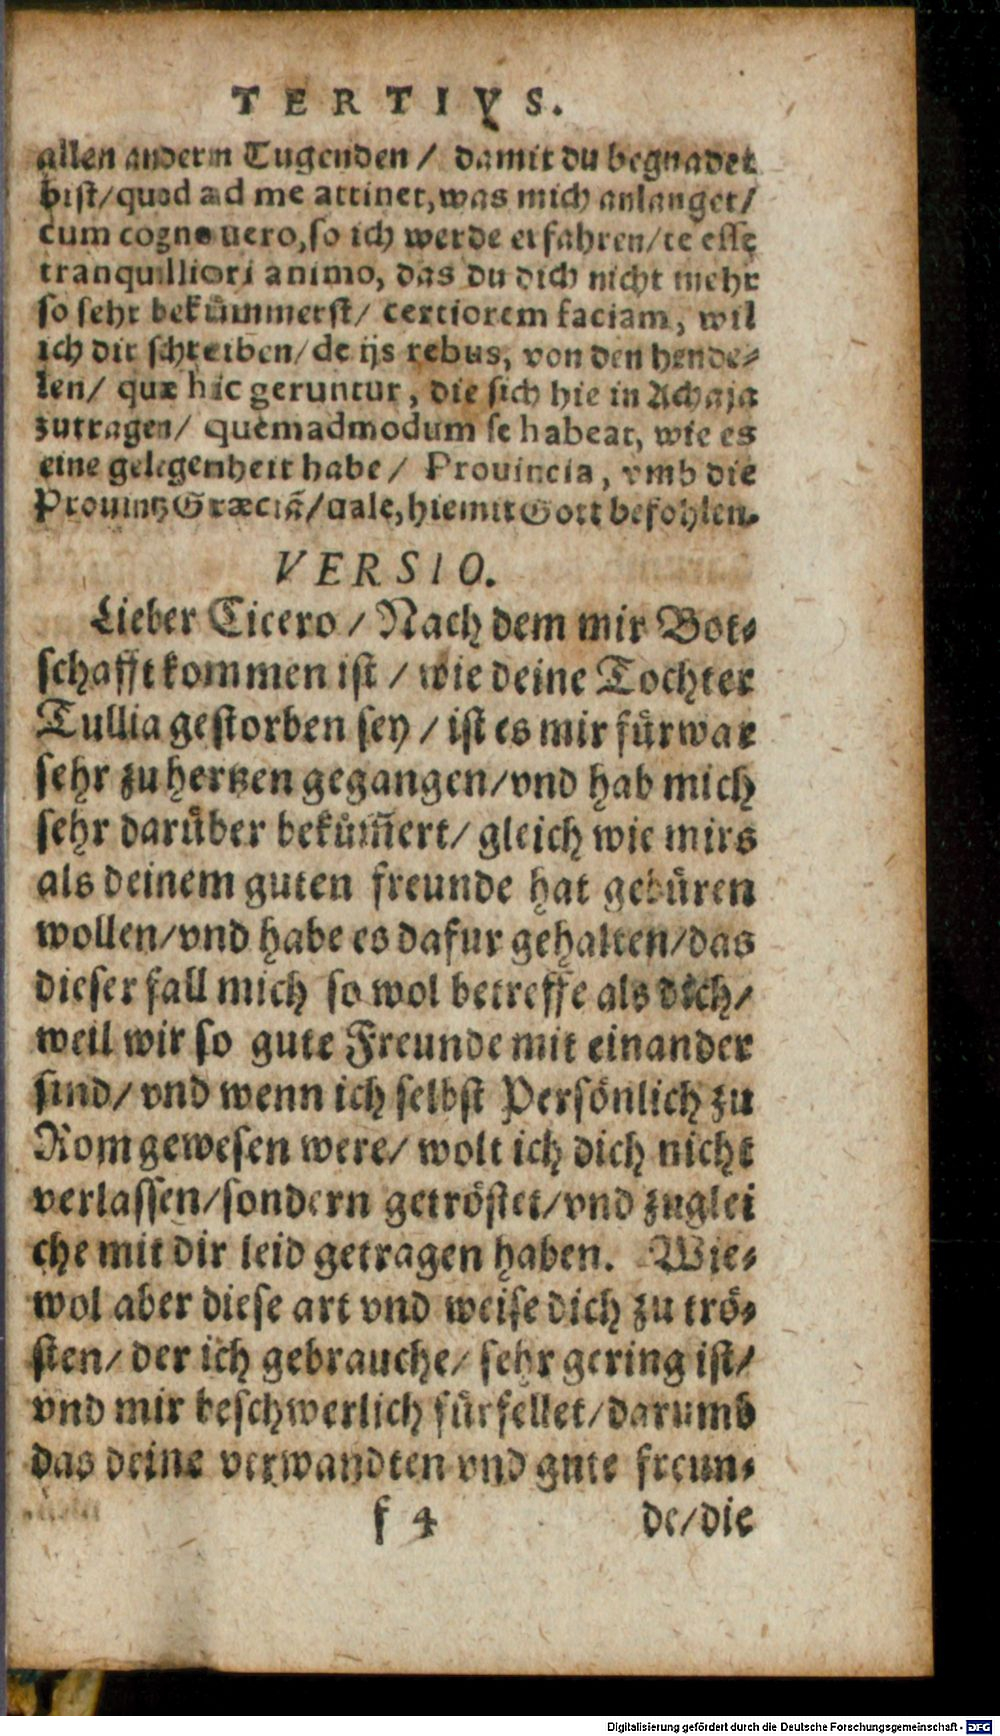 TERTIVS.
allen anderm Tugenden / damit du begnadet
bist/quod ad me attinet, was mich anlanget/
cum cogno uero, so ich werde erfahren/te esse
tranquilliori animo, das du dich nicht mehr
so sehr bekům̃merst/ certiorem faciam, wil
ich dir schreiben/de ijs rebus, von den hende⸗
len/ quæ hic geruntur, die sich hie in Achaja
zutragen/ quèmadmodum se habeat, wie es
eine gelegenheit habe/ Prouincia, vmb die
Prouintz Græciā/uale, hiemit Gott befohlen.
VERSIO.
Lieber Cicero / Nach dem mir Bot⸗
schafft kommen ist / wie deine Tochter
Tullia gestorben sey / ist es mir fůrwar
sehr zu hertzen gegangen/vnd hab mich
sehr darůber bekům̃ert/ gleich wie mirs
als deinem guten freunde hat gebůren
wollen/vnd habe es dafur gehalten/das
dieser fall mich so wol betreffe als dich/
weil wir so gute Freunde mit einander
sind/ vnd wenn ich selbst Persönlich zu
Rom gewesen were/ wolt ich dich nicht
verlassen/sondern getröstet/vnd zuglei
che mit dir leid getragen haben. Wie⸗
wol aber diese art vnd weise dich zu trö⸗
sten/ der ich gebrauche/ sehr gering ist/
vnd mir beschwerlich fůrfellet/darumb
das deine verwandten vnd gute freun⸗
f 4 de/die
Digitalisierung gefördert durch die Deutsche Forschungsgemeinschaft - DFG